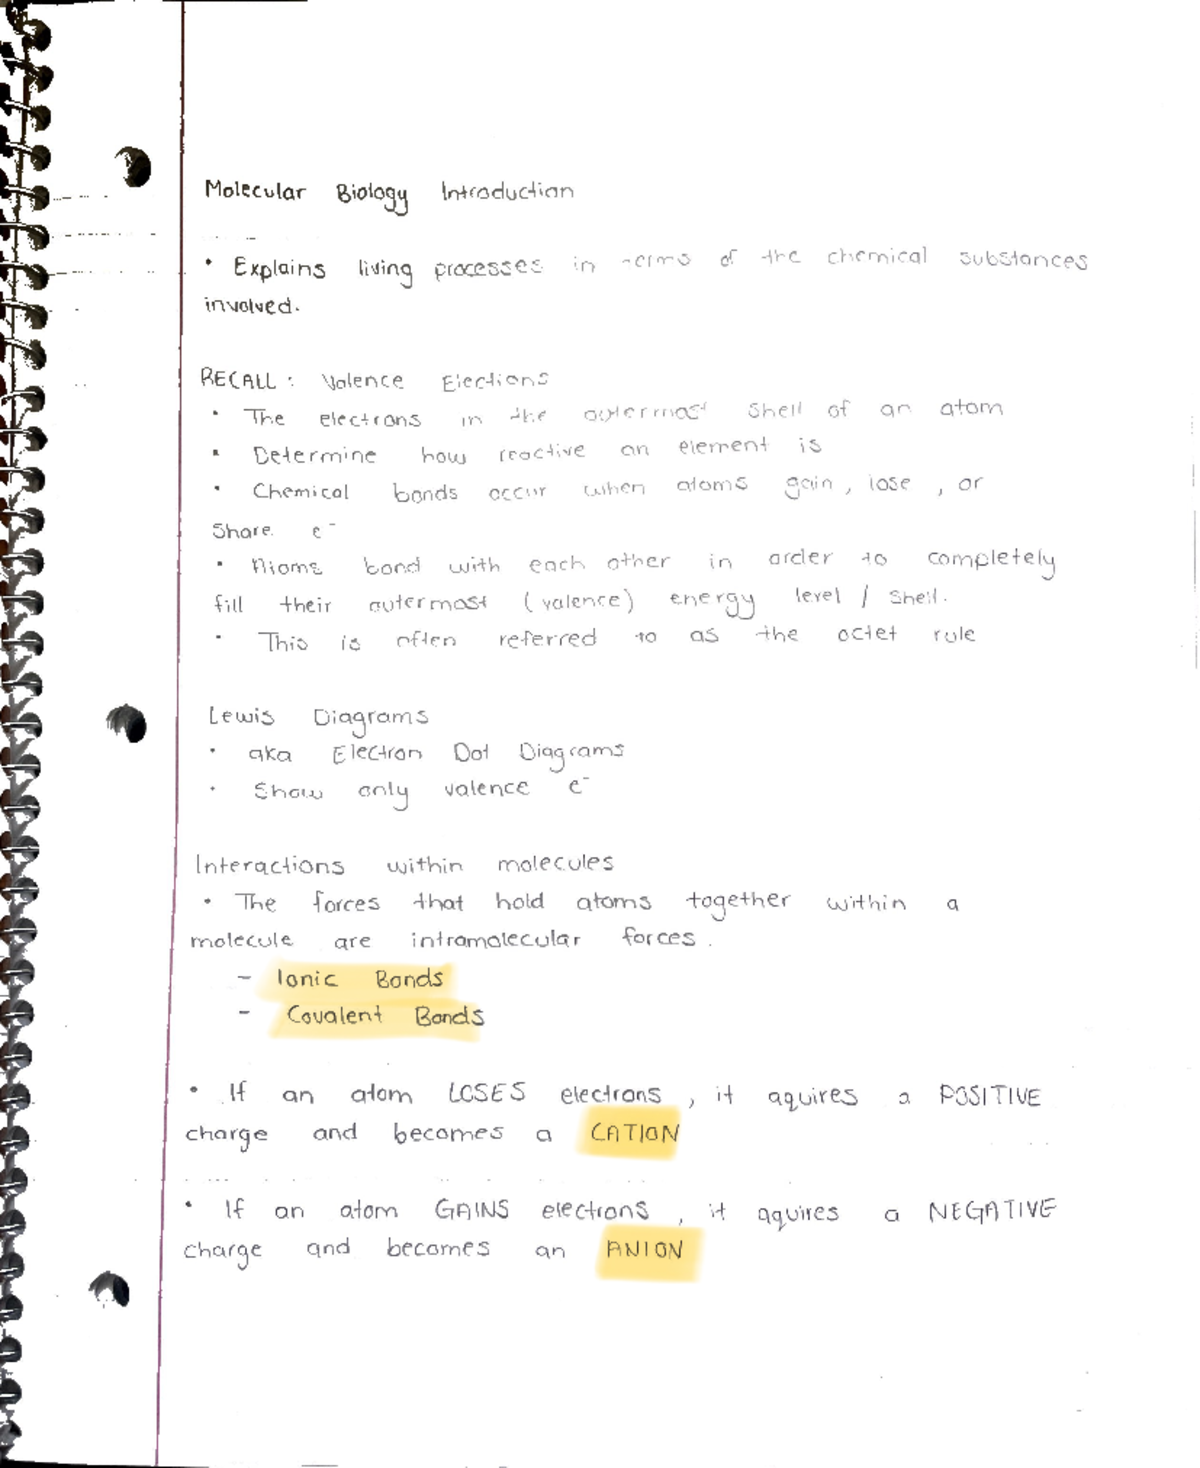 Molecular Biology Introduction
• Explains living processes in terms of the chemical substances
involved.
RECALL : Valence Electrons
• The electrons in the outermost shell of an atom
• Determine how reactive an element is
• Chemical bonds occur when atoms gain , lose , or
Share e⁻
• Atoms bond with each other in order to completely
fill their outermost (valence) energy level / shell.
• This is often referred to as the octet rule
Lewis Diagrams
• aka Electron Dot Diagrams
• Show only valence e⁻
Interactions within molecules
• The forces that hold atoms together within a
molecule are intramolecular forces.
- Ionic Bonds
- Covalent Bonds
• If an atom LOSES electrons , it aquires a POSITIVE
charge and becomes a CATION
• If an atom GAINS electrons , it aquires a NEGATIVE
charge and becomes an ANION